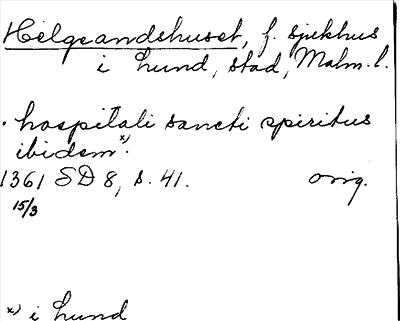 Helgeandshuset, f. sjukhus
i Lund, stad, Malm. l.
. hospitali sancti spiritus
ibidem x).
1361 SD 8, s. 41. orig.
15/3
x) i Lund